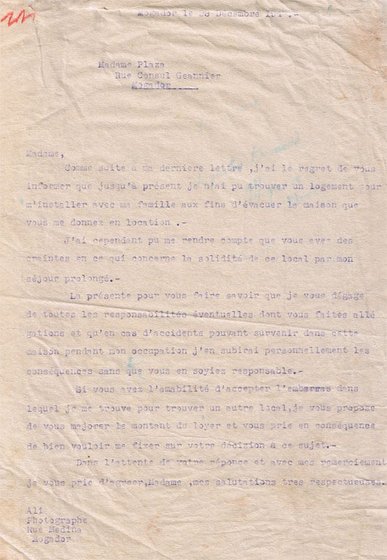 Mogador le 28 Décembre
Madame Plaze
Rue Consul
Mogador
Madame,
Comme suite à ma dernière lettre ,j'ai le regret de vous
informer que jusqu'à présent je n'ai pu trouver un logement pour
m'installer avec ma famille aux fins d'évacuer la maison que
vous me donnez en location .-
J'ai cependant pu me rendre compte que vous avez des
craintes en ce qui concerne la solidité de ce local par mon
séjour prolongé.-
La présente pour vous faire savoir que je vous dégage
de toutes les responsabilités éventuelles dont vous faites allé
gations et qu'en cas d'accidents pouvant survenir dans cette
maison pendant mon occupation j'en subirai personnellement les
conséquences sans que vous en soyiez responsable.-
Si vous avez l'amabilité d'accepter l'embarras dans
lequel je me trouve pour trouver un autre local,je vous propose
de vous majorer le montant du loyer et vous prie en conséquence
de bien vouloir me fixer sur votre décizion à ce sujet.-
Dans l'attente de votre réponse et avec mes remerciement
je vous prie d'agréer,Madame ,mes salutations très respectueuses.
Ali
Photographe
Rue Medina
Mogador